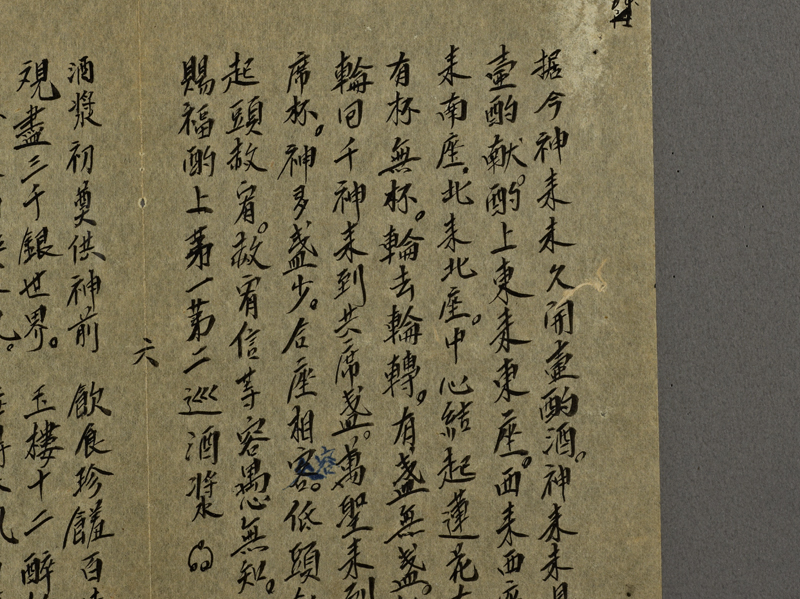 据今神来未久開壺酌酒。神来未
壺酌献。酌上東来東座。西来西座
来南座。北来北座。中心結起蓮花
有杯無杯。輪去輪轉。有盞無盞。
輪回千神来到共席盞。萬聖来到
席杯。神多盞少。合座相容。低頭
起頭赦宥。赦宥信等容愚無知。
賜福酌上第一第二巡酒漿
六
酒漿初奠供神前 飲食珍饈百
覌盡三千銀世界。玉樓十二醉